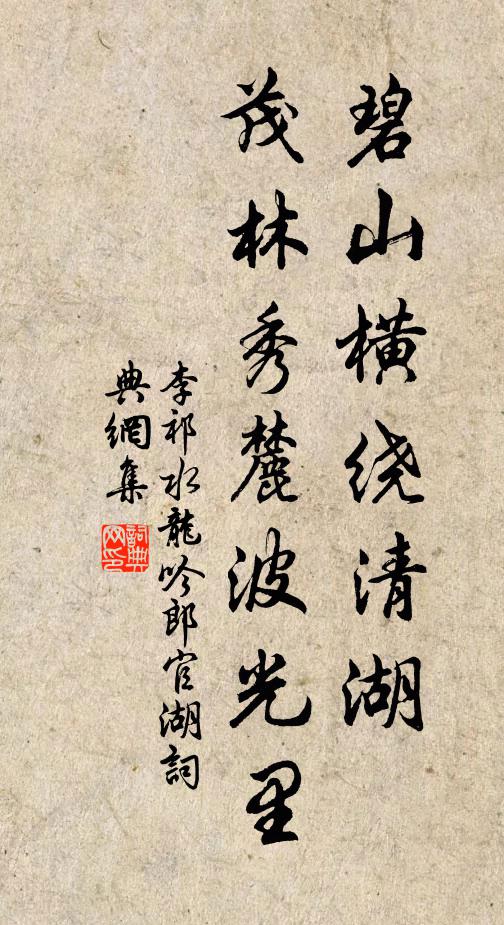 碧山横绕清湖
茂林秀麓波光里
李祁水龍吟郎官湖詞
典網集
詞典网印